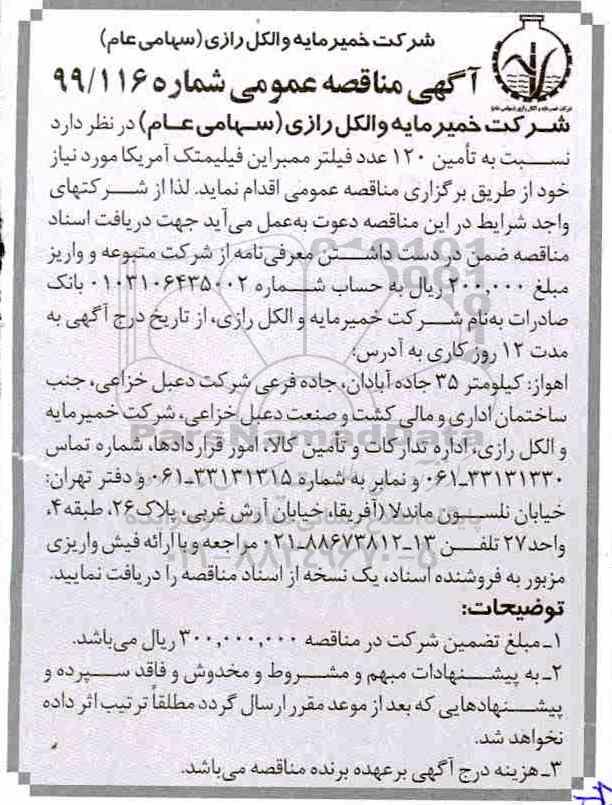 شرکت خمیرمایه والکل رازی (سهامی عام)
آگهی مناقصه عمومی شماره ۹۹/۱۱۶
شرکت خمیرمایه والکل رازی (سهامی عام) در نظر دارد
نسبت به تأمین ۱۲۰ عدد فیلتر ممبراین فیلیمتک آمریکا مورد نیاز
خود از طریق برگزاری مناقصه عمومی اقدام نماید. لذا از شرکتهای
واجد شرایط در این مناقصه دعوت به‌عمل می‌آید جهت دریافت اسناد
مناقصه ضمن در دست داشتن معرفی‌نامه از شرکت متبوعه و واریز
مبلغ ۲۰۰,۰۰۰ ریال به حساب شماره ۰۱۰۳۱۰۶۴۳۵۰۰۲ بانک
صادرات به‌نام شرکت خمیرمایه و الکل رازی، از تاریخ درج آگهی به
مدت ۱۲ روز کاری به آدرس:
اهواز: کیلومتر ۳۵ جاده آبادان، جاده فرعی شرکت دعبل خزاعی، جنب
ساختمان اداری و مالی کشت و صنعت دعبل خزاعی، شرکت خمیرمایه
و الکل رازی، اداره تدارکات و تأمین کالا، امور قراردادها، شماره تماس
۰۶۱-۳۳۱۳۱۳۳۰ و نمابر به شماره ۰۶۱-۳۳۱۳۱۳۱۵ و دفتر تهران:
خیابان نلسون ماندلا (آفریقا)، خیابان آرش غربی، پلاک۲۶، طبقه۴،
واحد۲۷ تلفن ۱۳-۰۲۱-۸۸۶۷۳۸۱۲ مراجعه و با ارائه فیش واریزی
مزبور به فروشنده اسناد، یک نسخه از اسناد مناقصه را دریافت نمایید.
توضیحات:
۱- مبلغ تضمین شرکت در مناقصه ۳۰۰,۰۰۰,۰۰۰ ریال می‌باشد.
۲- به پیشنهادات مبهم و مشروط و مخدوش و فاقد سپرده و
پیشنهادهایی که بعد از موعد مقرر ارسال گردد مطلقاً ترتیب اثر داده
نخواهد شد.
۳- هزینه درج آگهی برعهده برنده مناقصه می‌باشد.
ParsNamadData